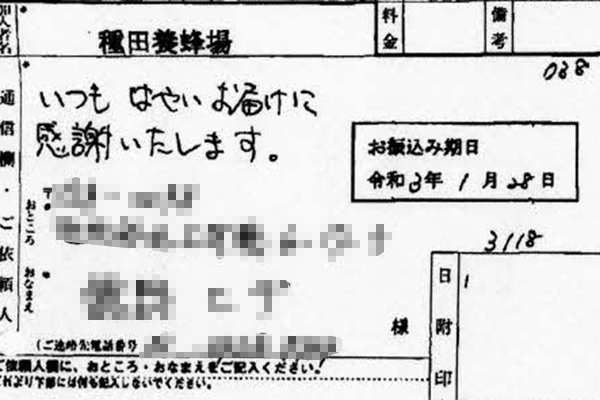 加入者名
種田養蜂場
料金
備考
038
通信欄・ご依頼人
いつも はやい お届けに
感謝いたします。
お振込み期日
令和3年 1月28日
〒
おところ
おなまえ
3118
様
日附印
(ご連絡先電話番号
ご依頼人欄に、おところ・おなまえをご記入ください。
これより下部には何も記入しないでください。